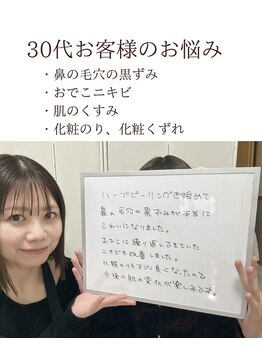 30代お客様のお悩み
・鼻の毛穴の黒ずみ
・おでこニキビ
・肌のくすみ
・化粧のり、化粧くずれ
ハーブピーリングを始めて
鼻の毛穴の黒ずみが本当に
きれいになりました。
おでこに繰り返しできていた
ニキビも改善しました。
化粧のりもすごく良くなったので
今後の肌の変化が楽しみです。